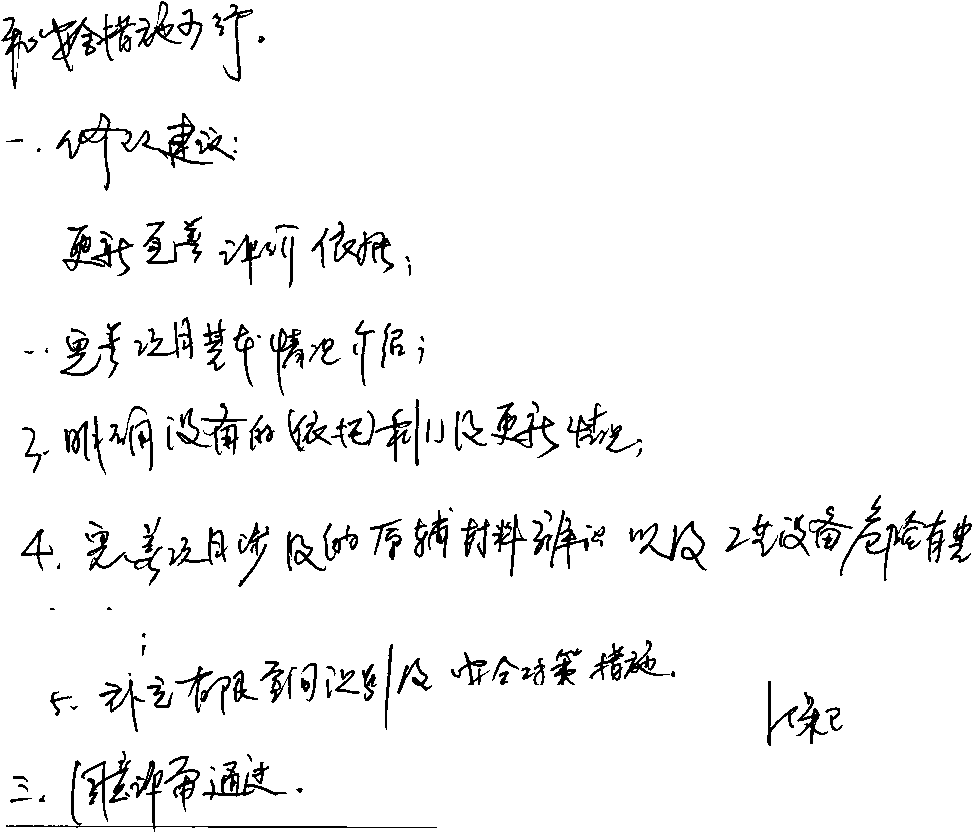 和安全措施可行。
一. 修改建议:
更新完善评价依据;
完善项目基本情况介绍;
3. 明确设备的依托利旧及更新情况;
4. 完善项目涉及的原辅材料辨识以及工艺设备危险有害
;
5. 补充有限空间识别及安全对策措施.
三. 同意评审通过.